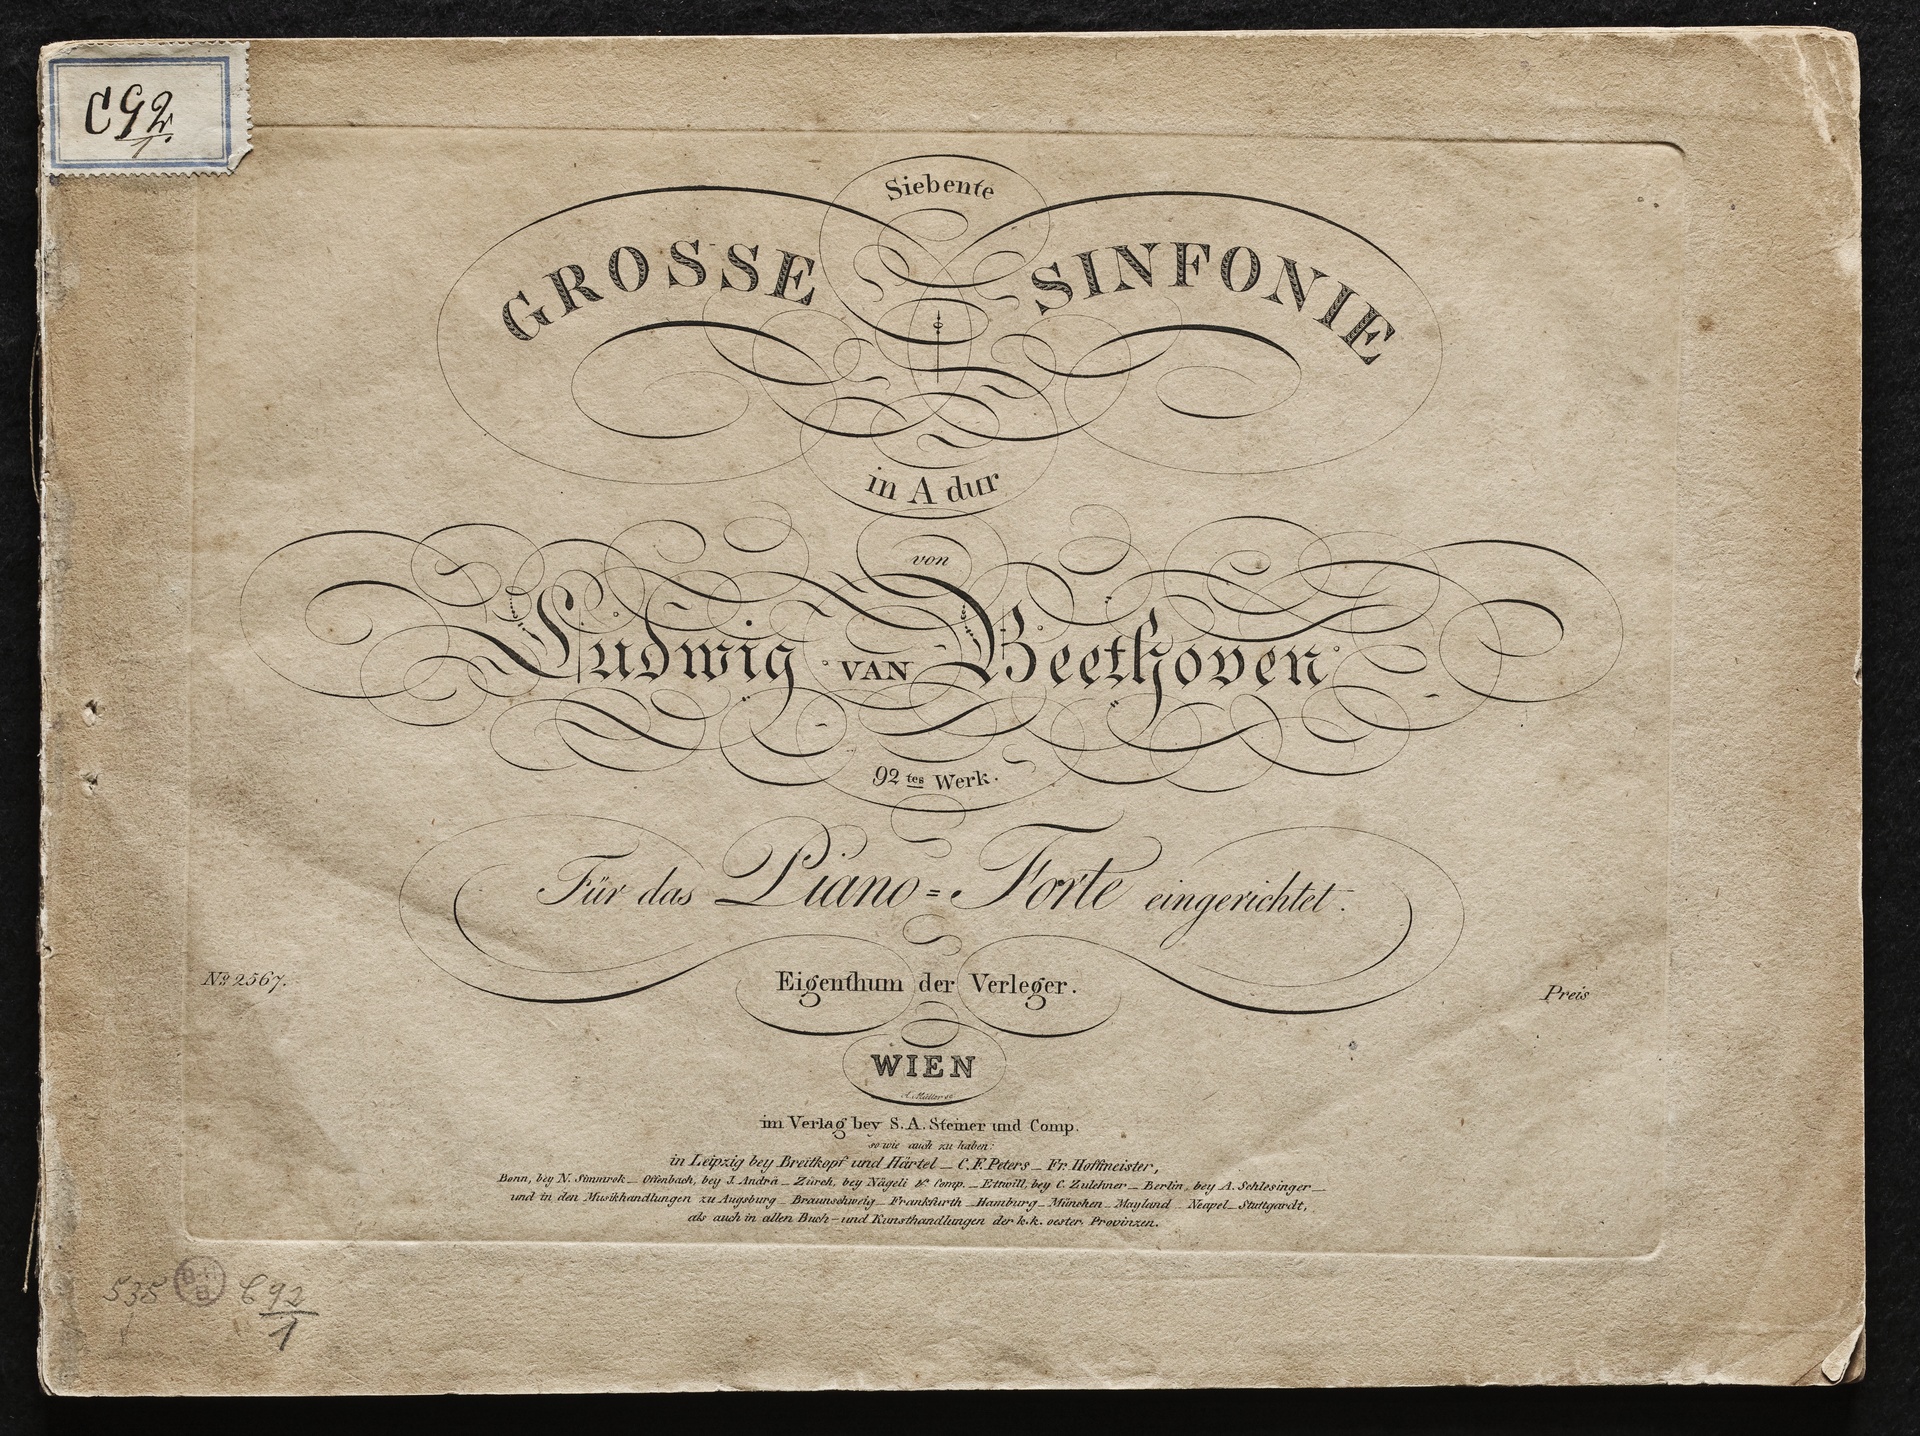 C92
1.
Siebente
GROSSE SINFONIE
in A dur
von
Ludwig VAN Beethoven
92tes Werk.
Für das Piano=Forte eingerichtet.
No 2567.
Eigenthum der Verleger.
Preis
WIEN
A. Müller sc
im Verlag bey S. A. Steiner und Comp.
so wie auch zu haben:
in Leipzig bey Breitkopf und Härtel _ C. F. Peters _ Fr. Hoffmeister,
Bonn, bey N. Simmrok _ Offenbach, bey J. Andrà _ Zürch, bey Nägeli & Comp. _ Ettwill, bey C. Zulehner _ Berlin, bey A. Schlesinger _
und in den Musikhandlungen zu Augsburg _ Braunschweig _ Frankfurth _ Hamburg _ München _ Mayland _ Neapel _ Stuttgardt,
als auch in allen Buch- und Kunsthandlungen der k. k. oester. Provinzen.
535 C 92
1